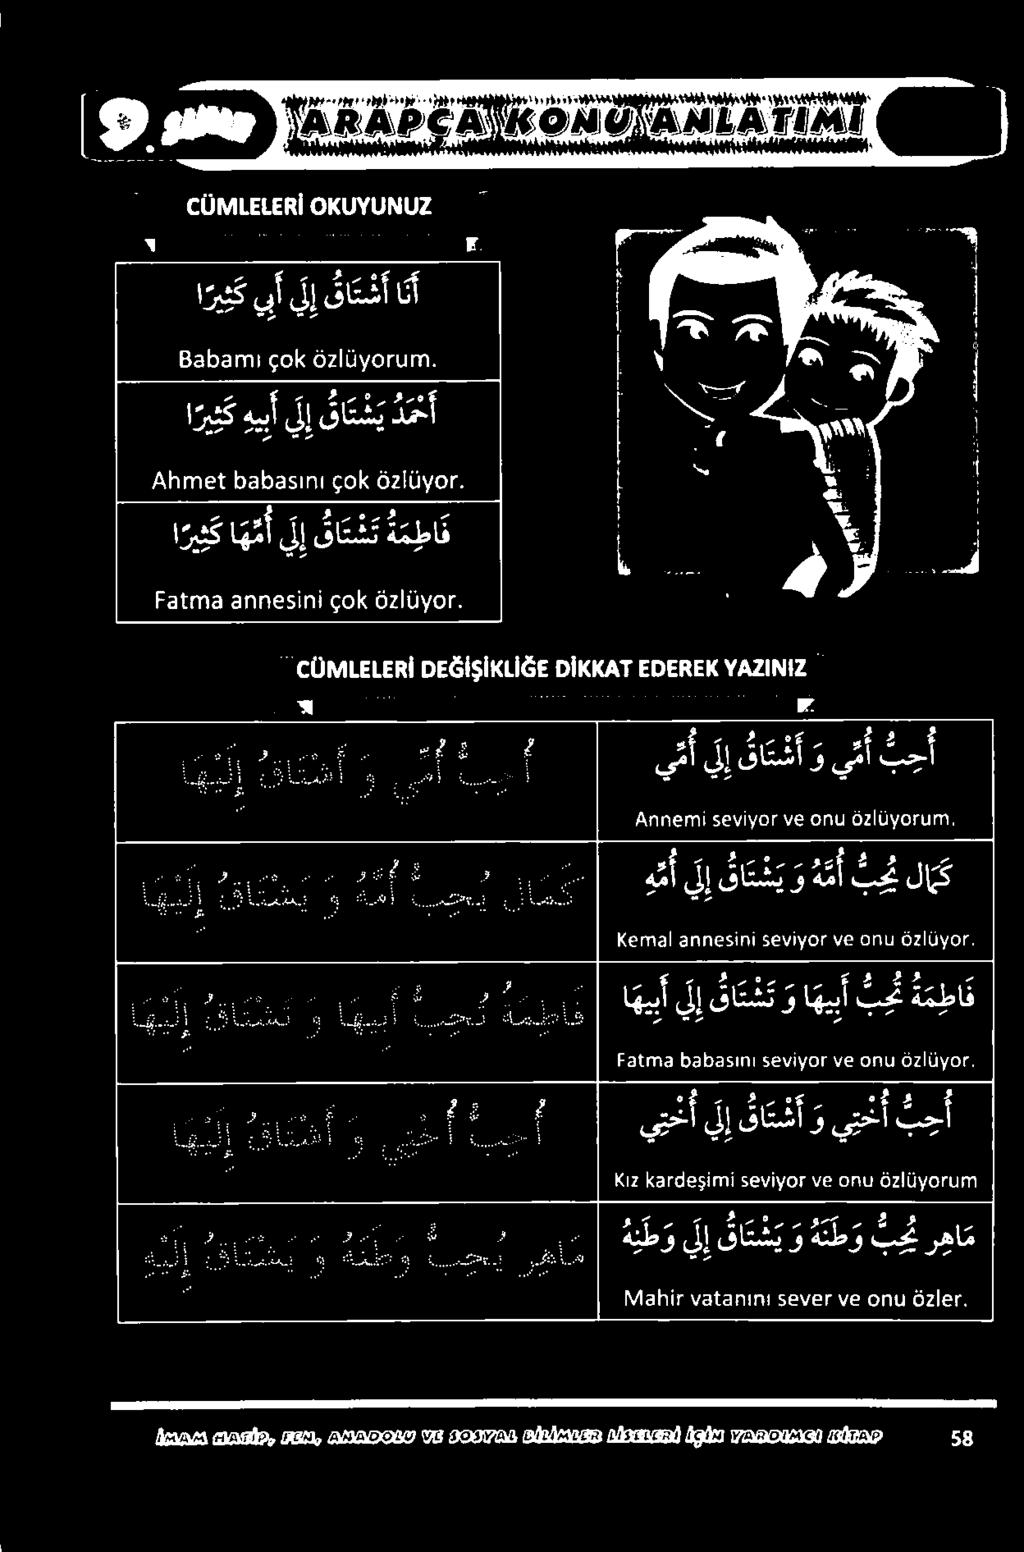 9. SINIF
ARAPÇA KONU ANLATIMI
CÜMLELERİ OKUYUNUZ
أَنَا أَشْتَاقُ إِلَي أَبِي كَثِيرًا
Babamı çok özlüyorum.
أَحْمَدُ يَشْتَاقُ إِلَي أَبِيهِ كَثِيرًا
Ahmet babasını çok özlüyor.
فَاطِمَةُ تَشْتَاقُ إِلَي أُمِّهَا كَثِيرًا
Fatma annesini çok özlüyor.
CÜMLELERİ DEĞİŞİKLİĞE DİKKAT EDEREK YAZINIZ
أُحِبُّ أُمِّي وَ أَشْتَاقُ إِلَي أُمِّي
أُحِبُّ أُمِّي وَ أَشْتَاقُ إِلَيْهَا
Annemi seviyor ve onu özlüyorum.
كَمَال يُحِبُّ أُمَّهُ وَ يَشْتَاقُ إِلَي أُمِّهِ
كَمَال يُحِبُّ أُمَّهُ وَ يَشْتَاقُ إِلَيْهَا
Kemal annesini seviyor ve onu özlüyor.
فَاطِمَةُ تُحِبُّ أَبِيهَا وَ تَشْتَاقُ إِلَي أَبِيهَا
فَاطِمَةُ تُحِبُّ أَبِيهَا وَ تَشْتَاقُ إِلَيْهَا
Fatma babasını seviyor ve onu özlüyor.
أُحِبُّ أُخْتِي وَ أَشْتَاقُ إِلَي أُخْتِي
أُحِبُّ أُخْتِي وَ أَشْتَاقُ إِلَيْهَا
Kız kardeşimi seviyor ve onu özlüyorum
مَاهِر يُحِبُّ وَطَنَهُ وَ يَشْتَاقُ إِلَي وَطَنِهُ
مَاهِر يُحِبُّ وَطَنَهُ وَ يَشْتَاقُ إِلَيْهِ
Mahir vatanını sever ve onu özler.
İMAM HATİP, FEN, ANADOLU VE SOSYAL BİLİMLER LİSELERİ İÇİN YARDIMCI KİTAP 58